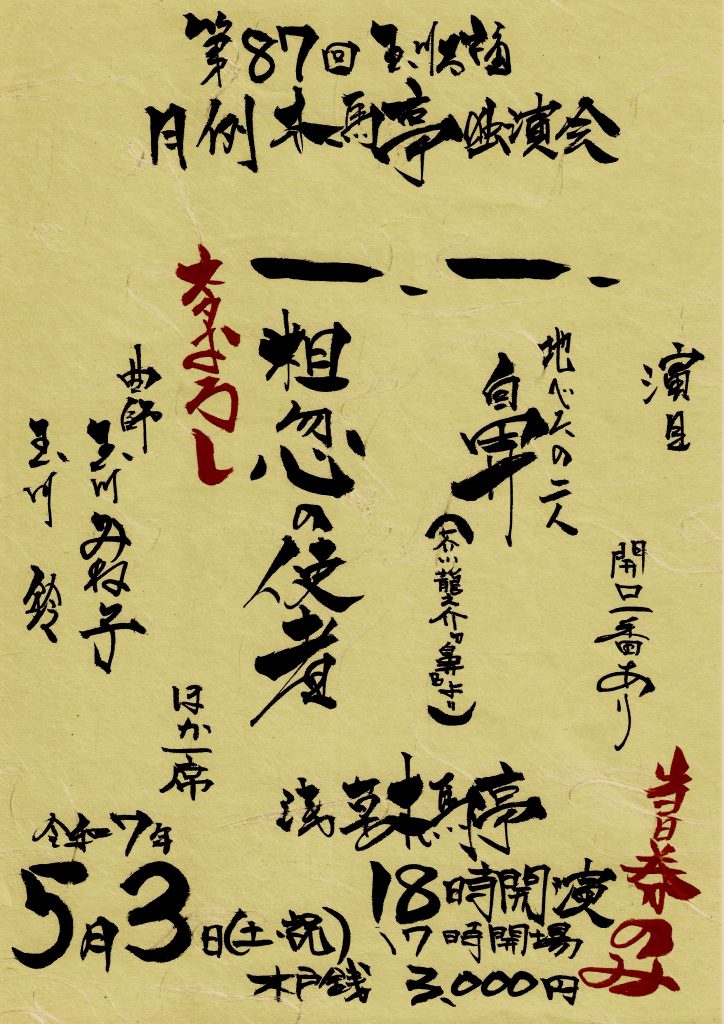 第87回 玉川太福
月例木馬亭独演会
演目
開口一番あり
一、
地べたの二人
鼻
(芥川龍之介「鼻」より)
一、粗忽の使者
ネタおろし
ほか一席
曲師
玉川みね子
玉川 鈴
浅草木馬亭
令和7年
5月3日(土・祝)
18時開演
17時開場
木戸銭 3,000円
当日券のみ